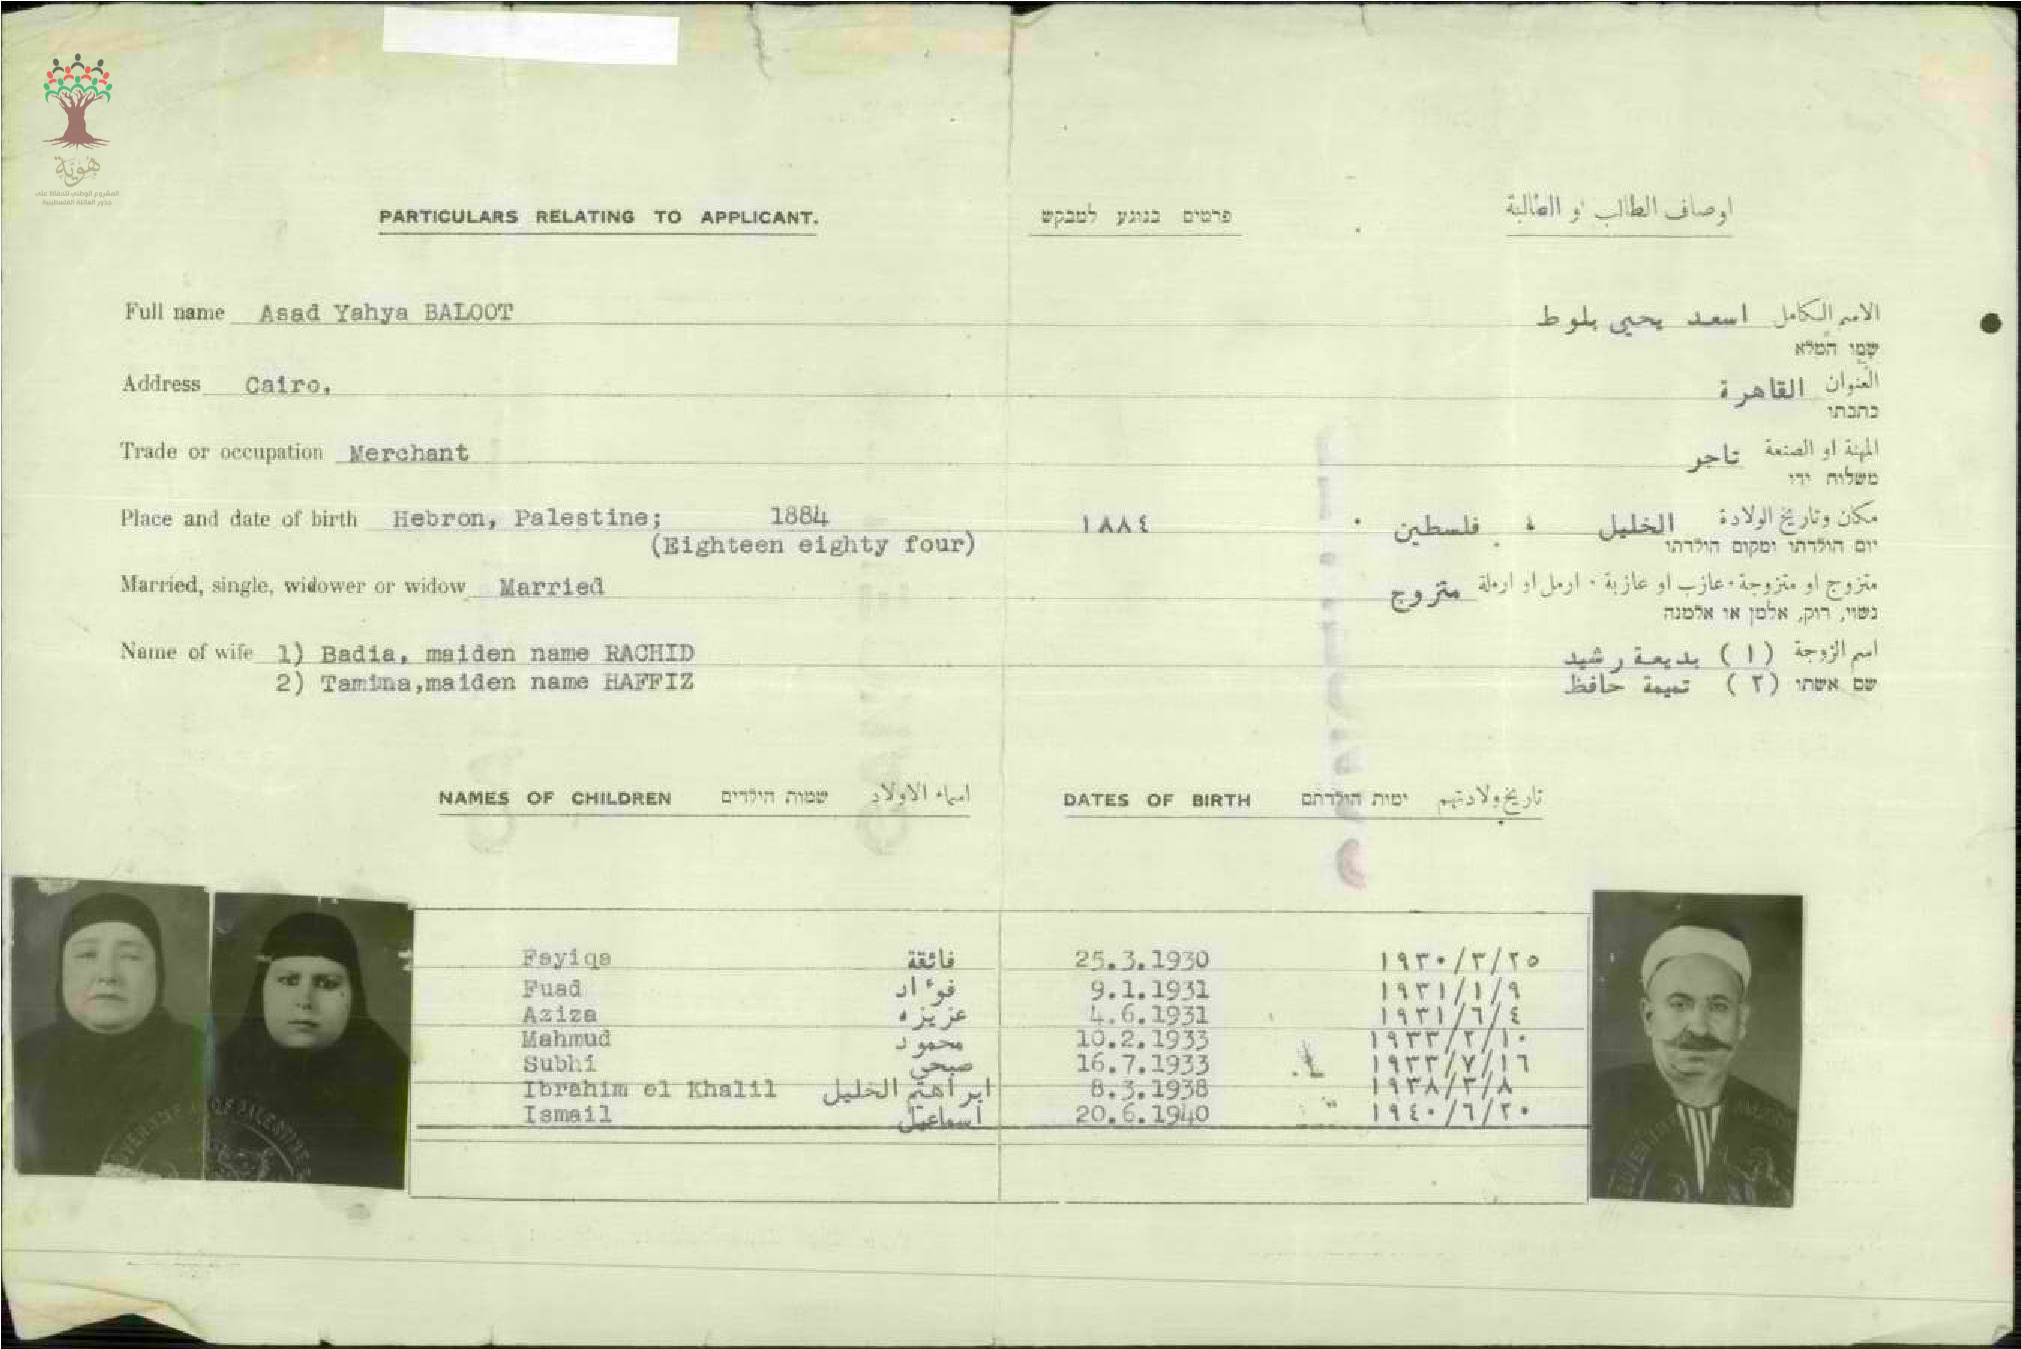 هُوِيَّة
المشروع الوطني للحفاظ على
جذور العائلة الفلسطينية
PARTICULARS RELATING TO APPLICANT. פרטים בנוגע למבקש اوصاف الطالب او الطالبة
Full name Asad Yahya BALOOT الاسم الكامل اسعد يحيى بلوط
שמו המלא
Address Cairo. العنوان القاهرة
כתבתו
Trade or occupation Merchant المهنة او الصنعة تاجر
משלוח ידו
Place and date of birth Hebron, Palestine; 1884 مكان وتاريخ الولادة الخليل ، فلسطين . ١٨٨٤
(Eighteen eighty four) יום הולדתו ומקום הולדתו
Married, single, widower or widow Married متزوج او متزوجة . عازب او عازبة . ارمل او ارملة متزوج
נשוי, רוק, אלמן או אלמנה
Name of wife 1) Badia, maiden name RACHID اسم الزوجة (١) بديعة رشيد
2) Tamima,maiden name HAFFIZ שם אשתו (٢) تميمة حافظ
NAMES OF CHILDREN שמות הילדים اسماء الاولاد DATES OF BIRTH ימות הולדתם تاريخ ولادتهم
Fayiqa فائقة 25.3.1930 ١٩٣٠/٣/٢٥
Fuad فوءاد 9.1.1931 ١٩٣١/١/٩
Aziza عزيزه 4.6.1931 ١٩٣١/٦/٤
Mahmud محمود 10.2.1933 ١٩٣٣/٢/١٠
Subhi صبحي 16.7.1933 ١٩٣٣/٧/١٦
Ibrahim el Khalil ابراهيم الخليل 8.3.1938 ١٩٣٨/٣/٨
Ismail اسماعيل 20.6.1940 ١٩٤٠/٦/٢٠